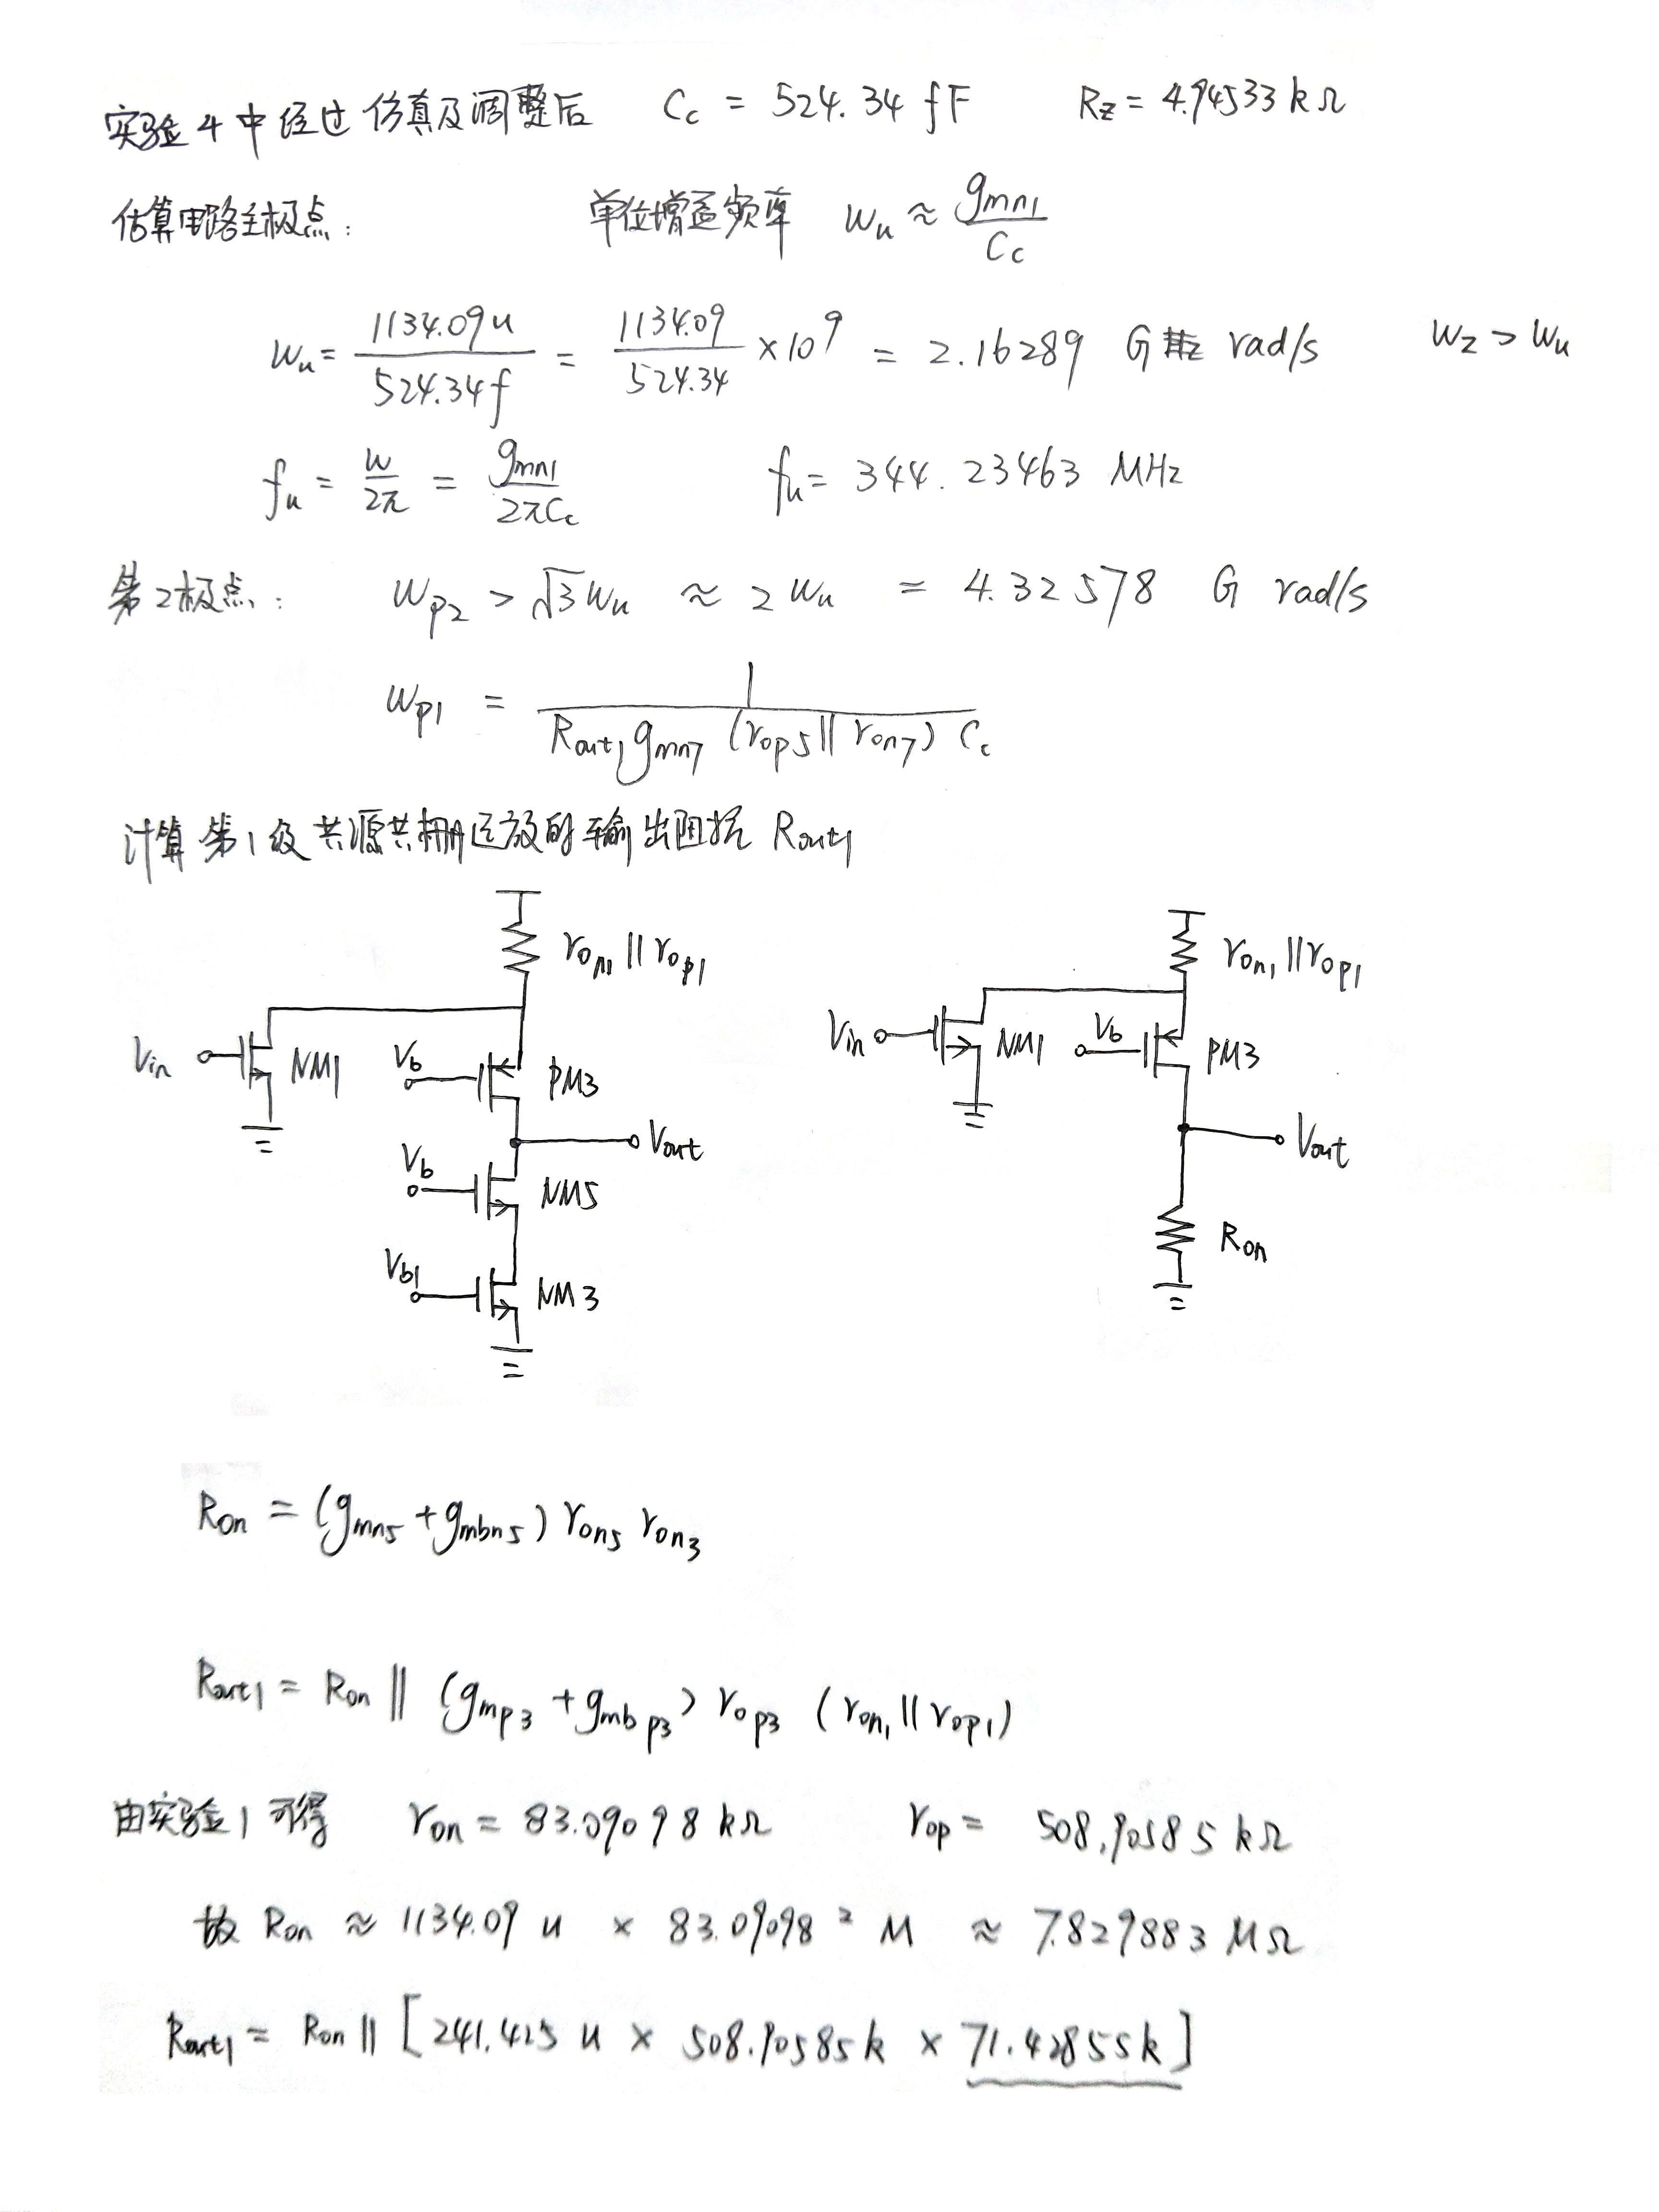 实验4中经过仿真及调整后 Cc = 524.34 fF Rz = 4.94533 kΩ
估算电路主极点: 单位增益频率 Wu ≈ gmn1/Cc
Wu = 1134.09u/524.34f = 1134.09/524.34 ×10^9 = 2.16289 G rad/s Wz > Wu
fu = w/2π = gmn1/2πCc fu = 344.23463 MHz
第2极点: Wp2 > √3 Wu ≈ 2 Wu = 4.32578 G rad/s
Wp1 = 1/(Rout1 gmn7 (rop5 || ron7) Cc)
计算第1级共源共栅运放的输出阻抗 Rout1
ron1 || rop1
Vin
NM1
Vb
PM3
Vout
Vb
NM5
Vb1
NM3
ron1 || rop1
Vin
NM1
Vb
PM3
Vout
Ron
Ron = (gmn5 + gmbn5) ron5 ron3
Rout1 = Ron || (gmp3 + gmbp3) rop3 (ron1 || rop1)
由实验1可得 ron = 83.09098 kΩ rop = 508.90585 kΩ
故 Ron ≈ 1134.09 u × 83.09098² M ≈ 7.829883 MΩ
Rout1 = Ron || [241.425 u × 508.90585k × 71.42855k]